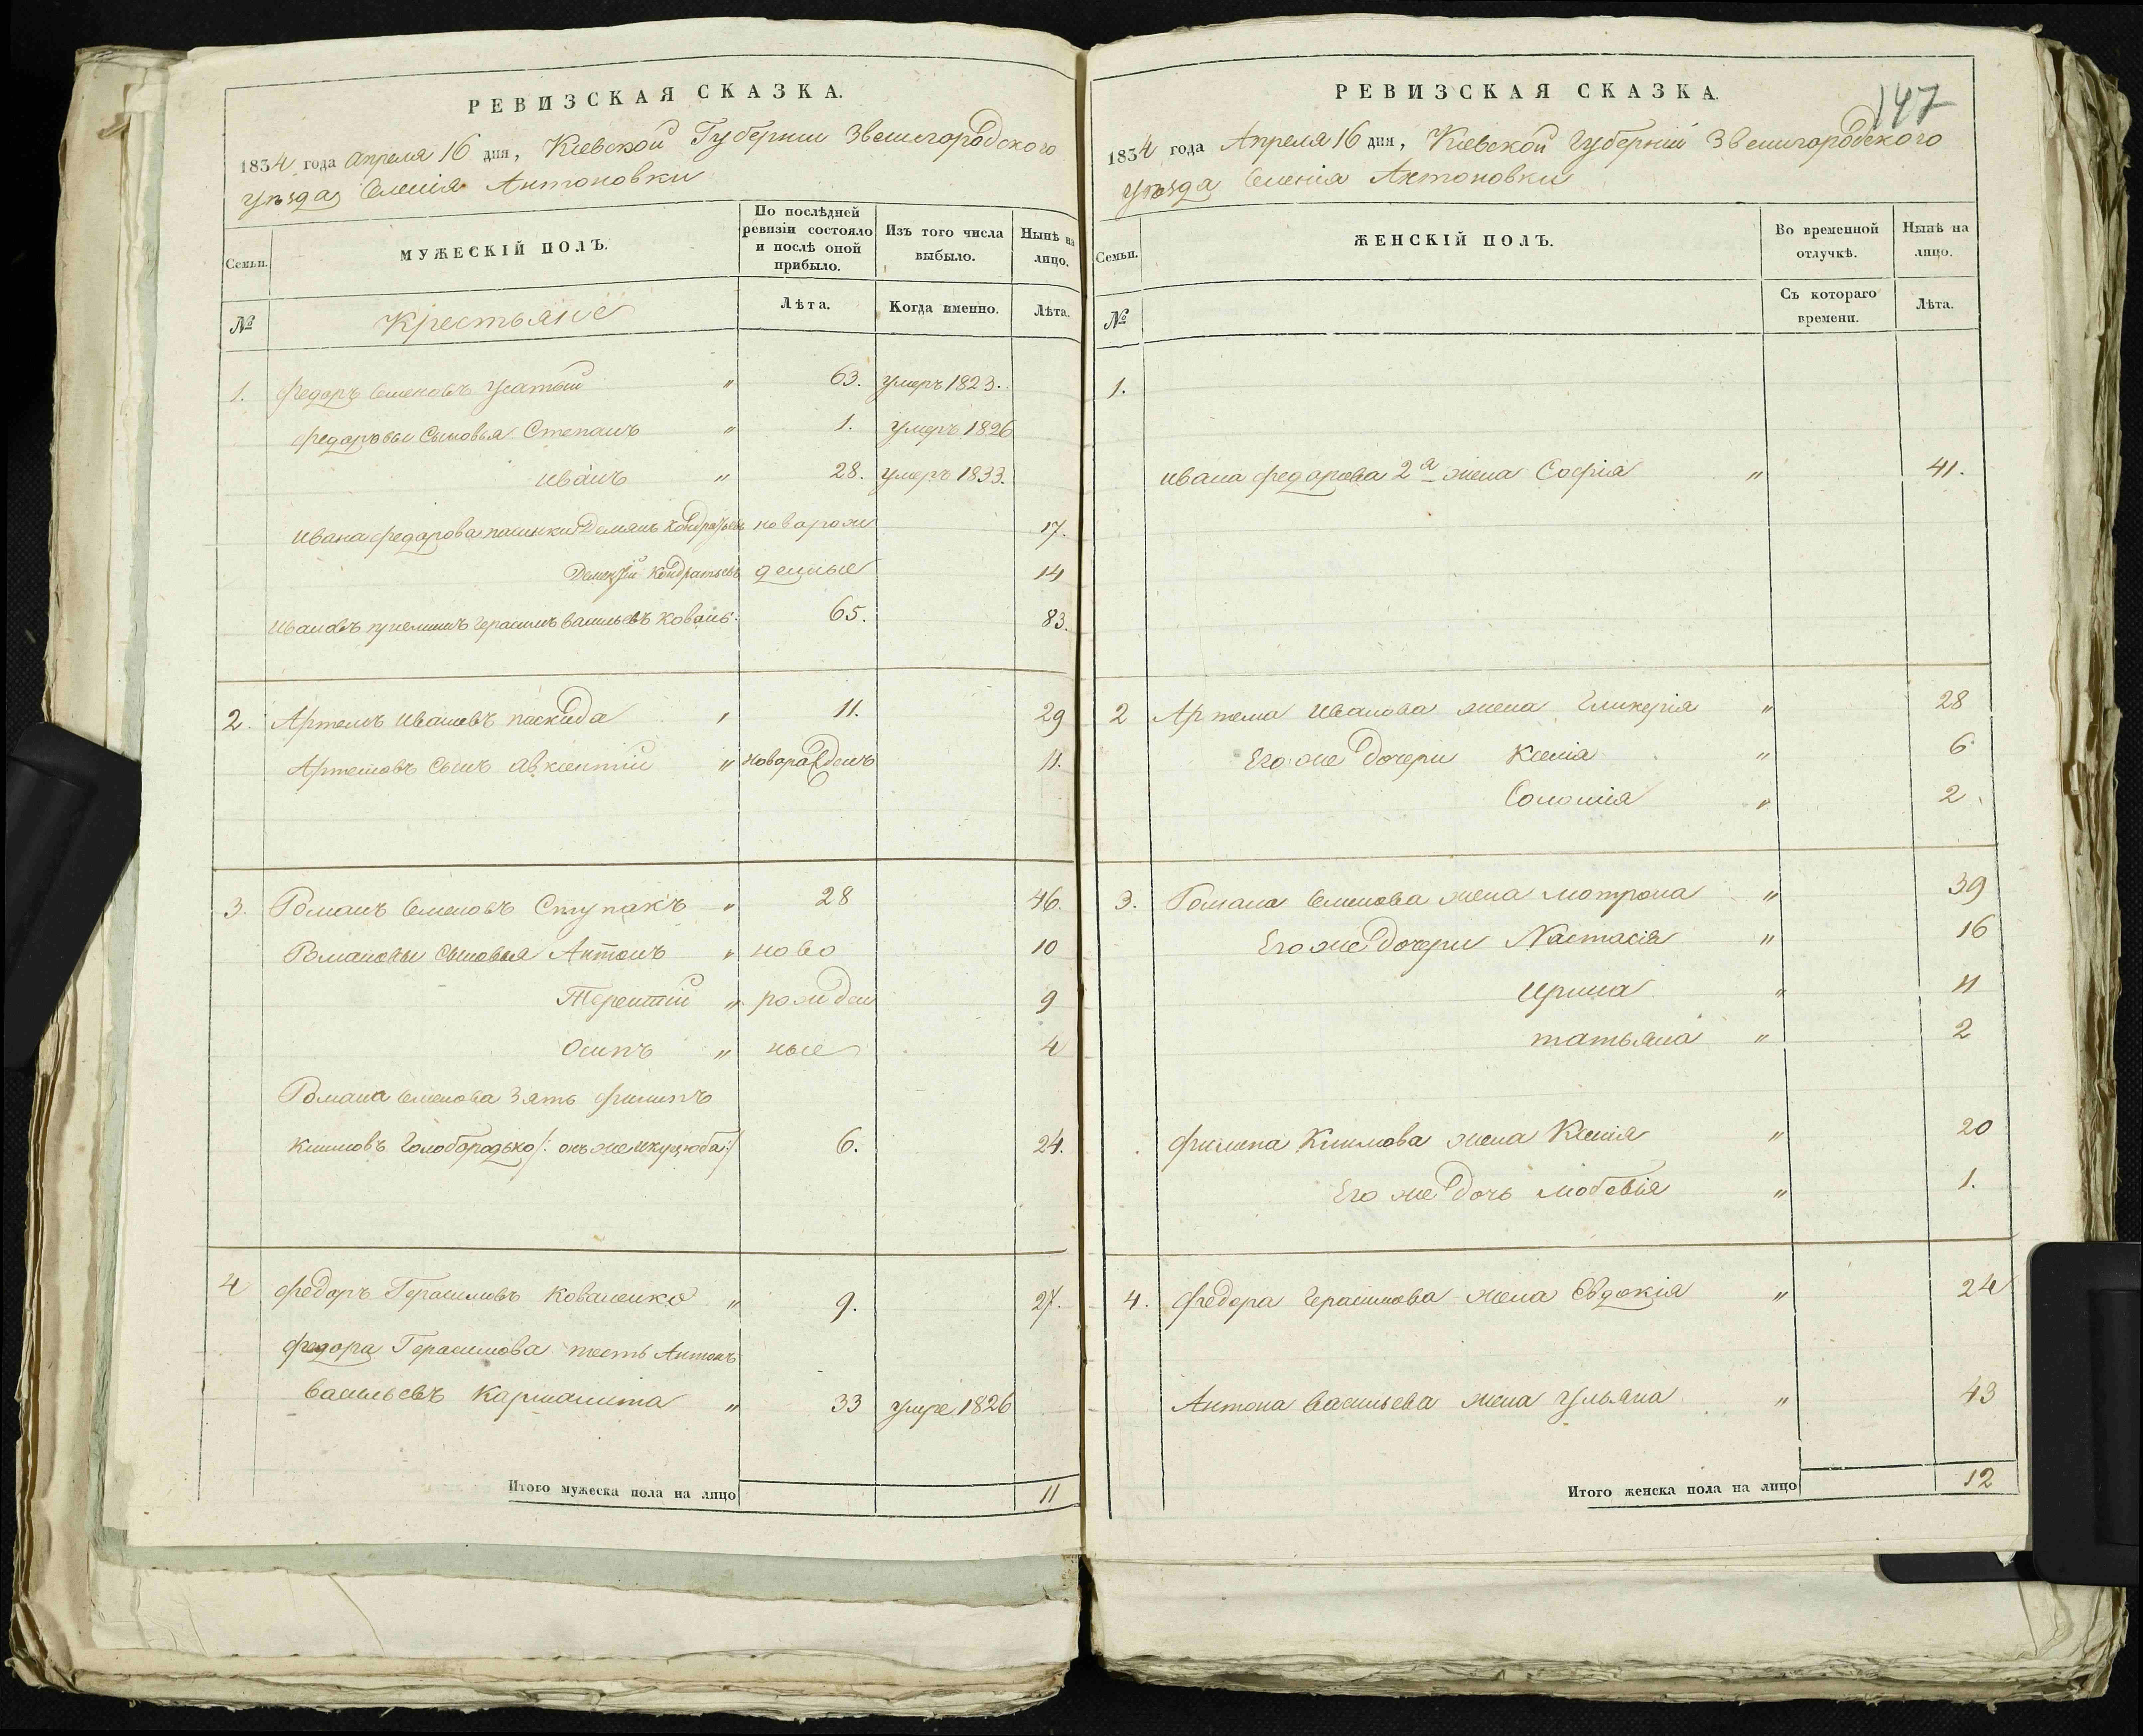 РЕВИЗСКАЯ СКАЗКА.
1834 года Апреля 16 дня, Кіевской Губерніи Звенигородского
уѣзда Селенія Антоновки
Семьи.
МУЖЕСКІЙ ПОЛЪ.
По послѣдней ревизіи состояло и послѣ оной прибыло.
Изъ того числа выбыло.
Нынѣ на лицо.
№
Крестьяне
Лѣта.
Когда именно.
Лѣта.
1. Федоръ Семеновъ Усатый " 63. умеръ 1823.
Федоровы Сыновья Степанъ " 1. умеръ 1826
Иванъ " 28. умеръ 1833.
Ивана Федорова пасынки Демянъ Кондратьевъ новорож 17.
Кондратьевъ денные 14
Ивановъ Герасимъ Васильевъ Коваль. 65. 83.
2. Артемъ Ивановъ " 11. 29
Артемовъ Сынъ Авксентій " новорожденъ 11.
3. Романъ Семеновъ Ступакъ " 28 46.
Романовы Сыновья Антонъ " ново 10
Терентій " рожден 9
Осипъ " ные 4
Романа Семенова Зять Филипъ
Климовъ Голобородько /: онъ же :/ 6. 24.
4 Федоръ Герасимовъ Коваленко " 9. 27.
Федора Герасимова тесть Антонъ
Васильевъ " 33 умре 1826
Итого мужеска пола на лицо 11
147
РЕВИЗСКАЯ СКАЗКА.
1834 года Апреля 16 дня, Кіевской Губерніи Звенигородского
уѣзда Селенія Антоновки
Семьи.
ЖЕНСКІЙ ПОЛЪ.
Во временной отлучкѣ.
Нынѣ на лицо.
№
Съ котораго времени.
Лѣта.
1.
Ивана Федорова 2я жена Софія " 41.
2 Артема Иванова жена Гликерія " 28
Его же дочери Ксенія " 6
Соломія " 2
3. Романа Семенова жена Мотрона " 39
Его же дочери Настасія " 16
Ирина " 11
татьяна " 2
Филипа Климова жена Ксенія " 20
Его же дочь " 1.
4. Федора Герасимова жена Евдокія " 24
Антона Васильева жена Ульяна " 43
Итого женска пола на лицо 12